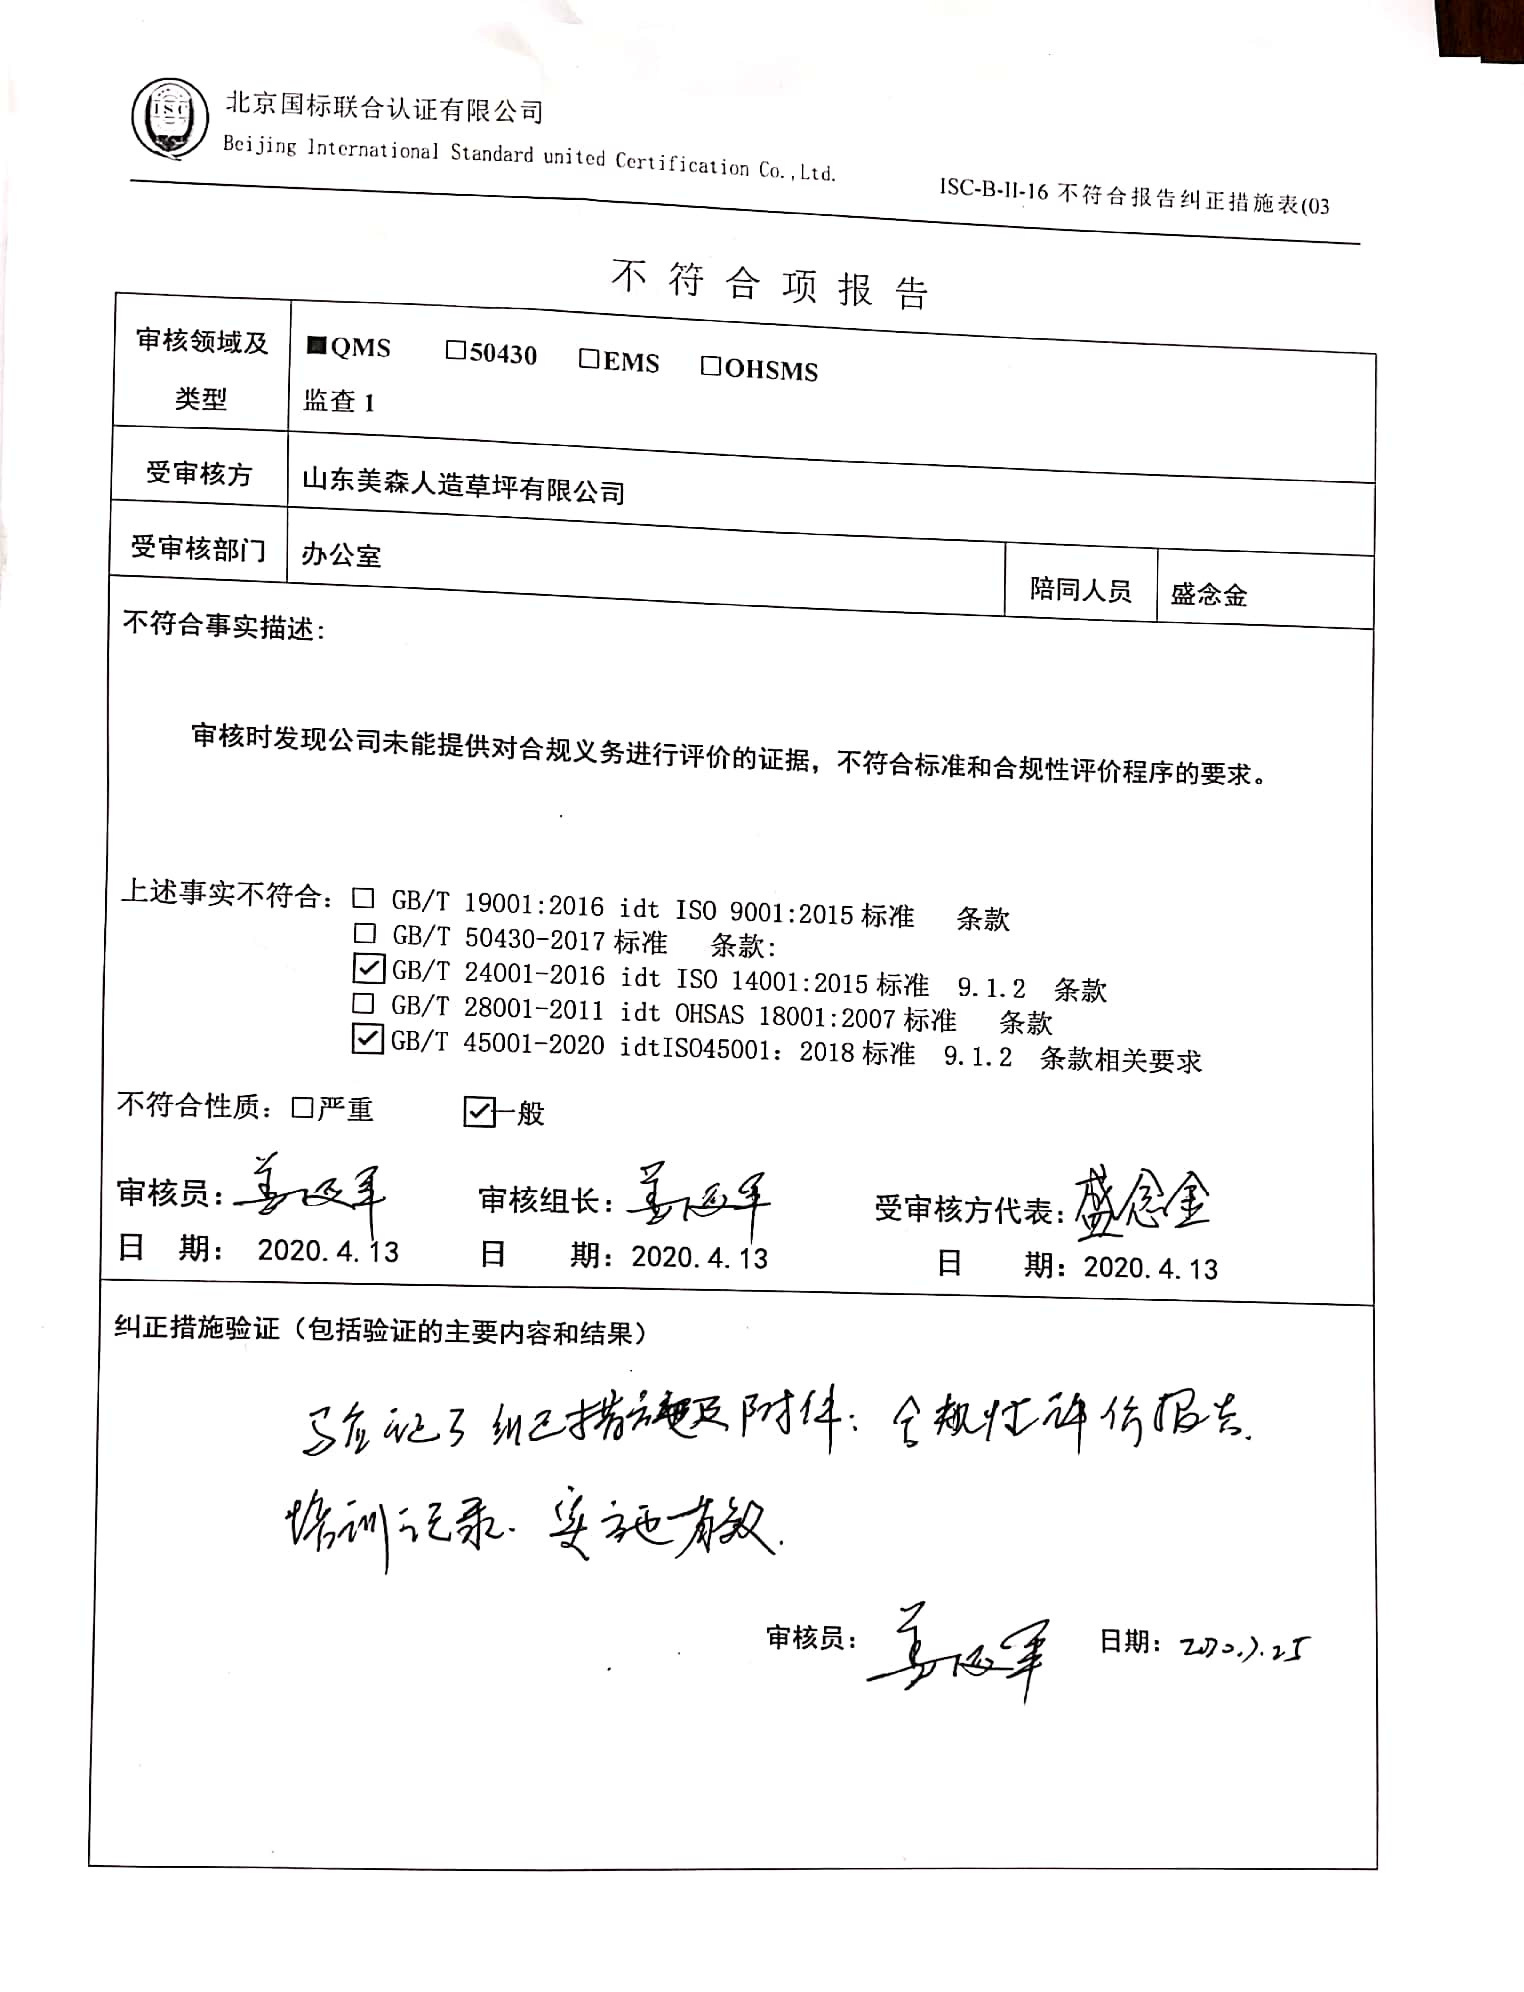 ISC
北京国标联合认证有限公司
Beijing International Standard united Certification Co.,Ltd.
ISC-B-II-16 不符合报告纠正措施表(03
不符合项报告
审核领域及类型
■QMS □50430 □EMS □OHSMS
监查 1
受审核方 山东美森人造草坪有限公司
受审核部门 办公室 陪同人员 盛念金
不符合事实描述:
审核时发现公司未能提供对合规义务进行评价的证据，不符合标准和合规性评价程序的要求。
上述事实不符合: □ GB/T 19001:2016 idt ISO 9001:2015 标准 条款
□ GB/T 50430-2017 标准 条款:
☑ GB/T 24001-2016 idt ISO 14001:2015 标准 9.1.2 条款
□ GB/T 28001-2011 idt OHSAS 18001:2007 标准 条款
☑ GB/T 45001-2020 idtISO45001：2018 标准 9.1.2 条款相关要求
不符合性质: □严重 ☑一般
审核员: 审核组长: 受审核方代表: 盛念金
日 期: 2020.4.13 日 期: 2020.4.13 日 期: 2020.4.13
纠正措施验证（包括验证的主要内容和结果）
验证了纠正措施及附件: 合规性评价报告.
培训记录. 实施有效.
审核员: 日期: